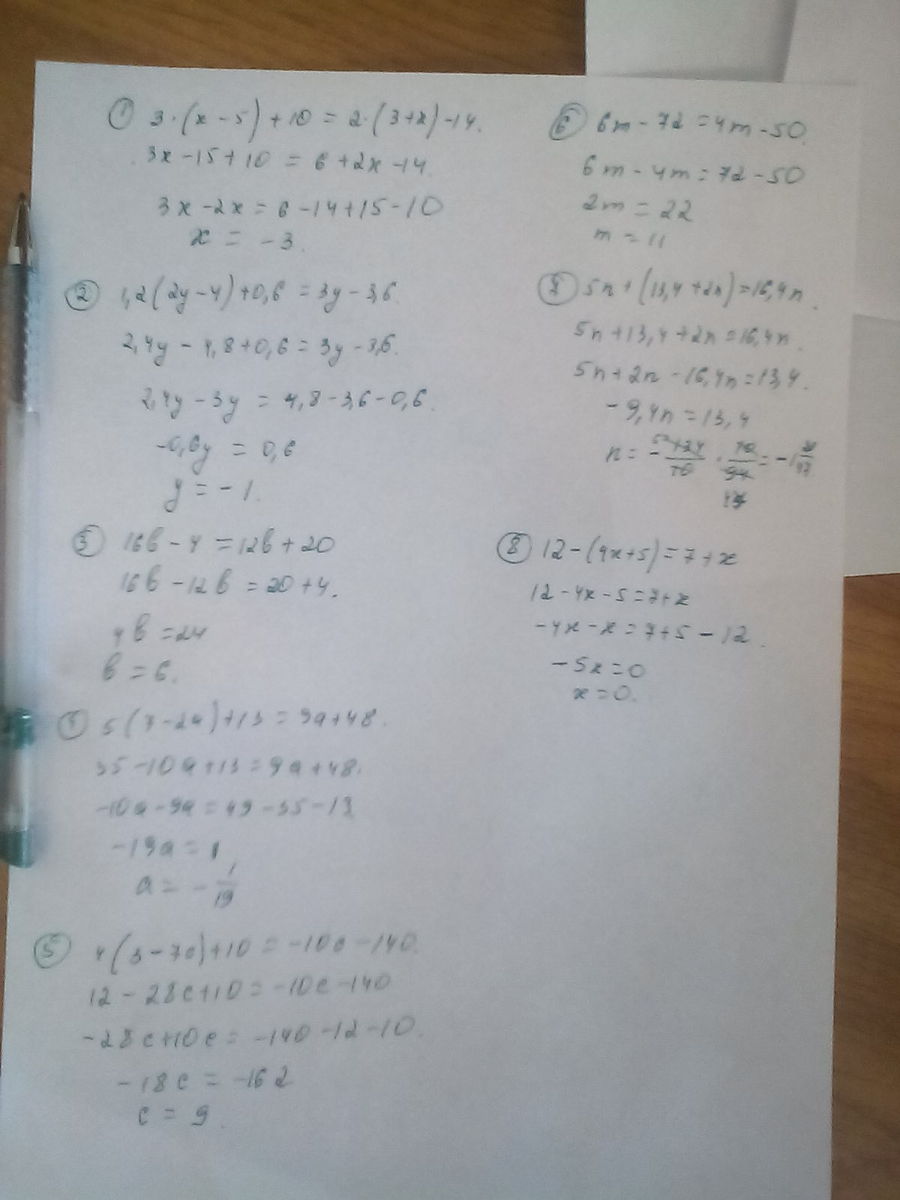 ① 3·(x-5)+10=2·(3+x)-14.
3x-15+10=6+2x-14.
3x-2x=6-14+15-10
x = -3.
② 1,2(2y-4)+0,6=3y-3,6.
2,4y-4,8+0,6=3y-3,6.
2,4y-3y=4,8-3,6-0,6.
-0,6y=0,6
y=-1.
③ 16b-4=12b+20
16b-12b=20+4.
4b=24
b=6.
④ 5(7-2a)+13=9a+48.
35-10a+13=9a+48.
-10a-9a=49-35-13
-19a=1
a=-1/19
⑤ 4(3-7c)+10=-10c-140.
12-28c+10=-10c-140
-28c+10c=-140-12-10.
-18c=-162
c=9.
⑥ 6m-72=4m-50.
6m-4m=72-50
2m=22
m=11
⑦ 5n+(13,4+2n)=16,4n.
5n+13,4+2n=16,4n.
5n+2n-16,4n=13,4.
-9,4n=13,4
⑧ 12-(4x+5)=7+x
12-4x-5=7+x
-4x-x=7+5-12.
-5x=0
x=0.